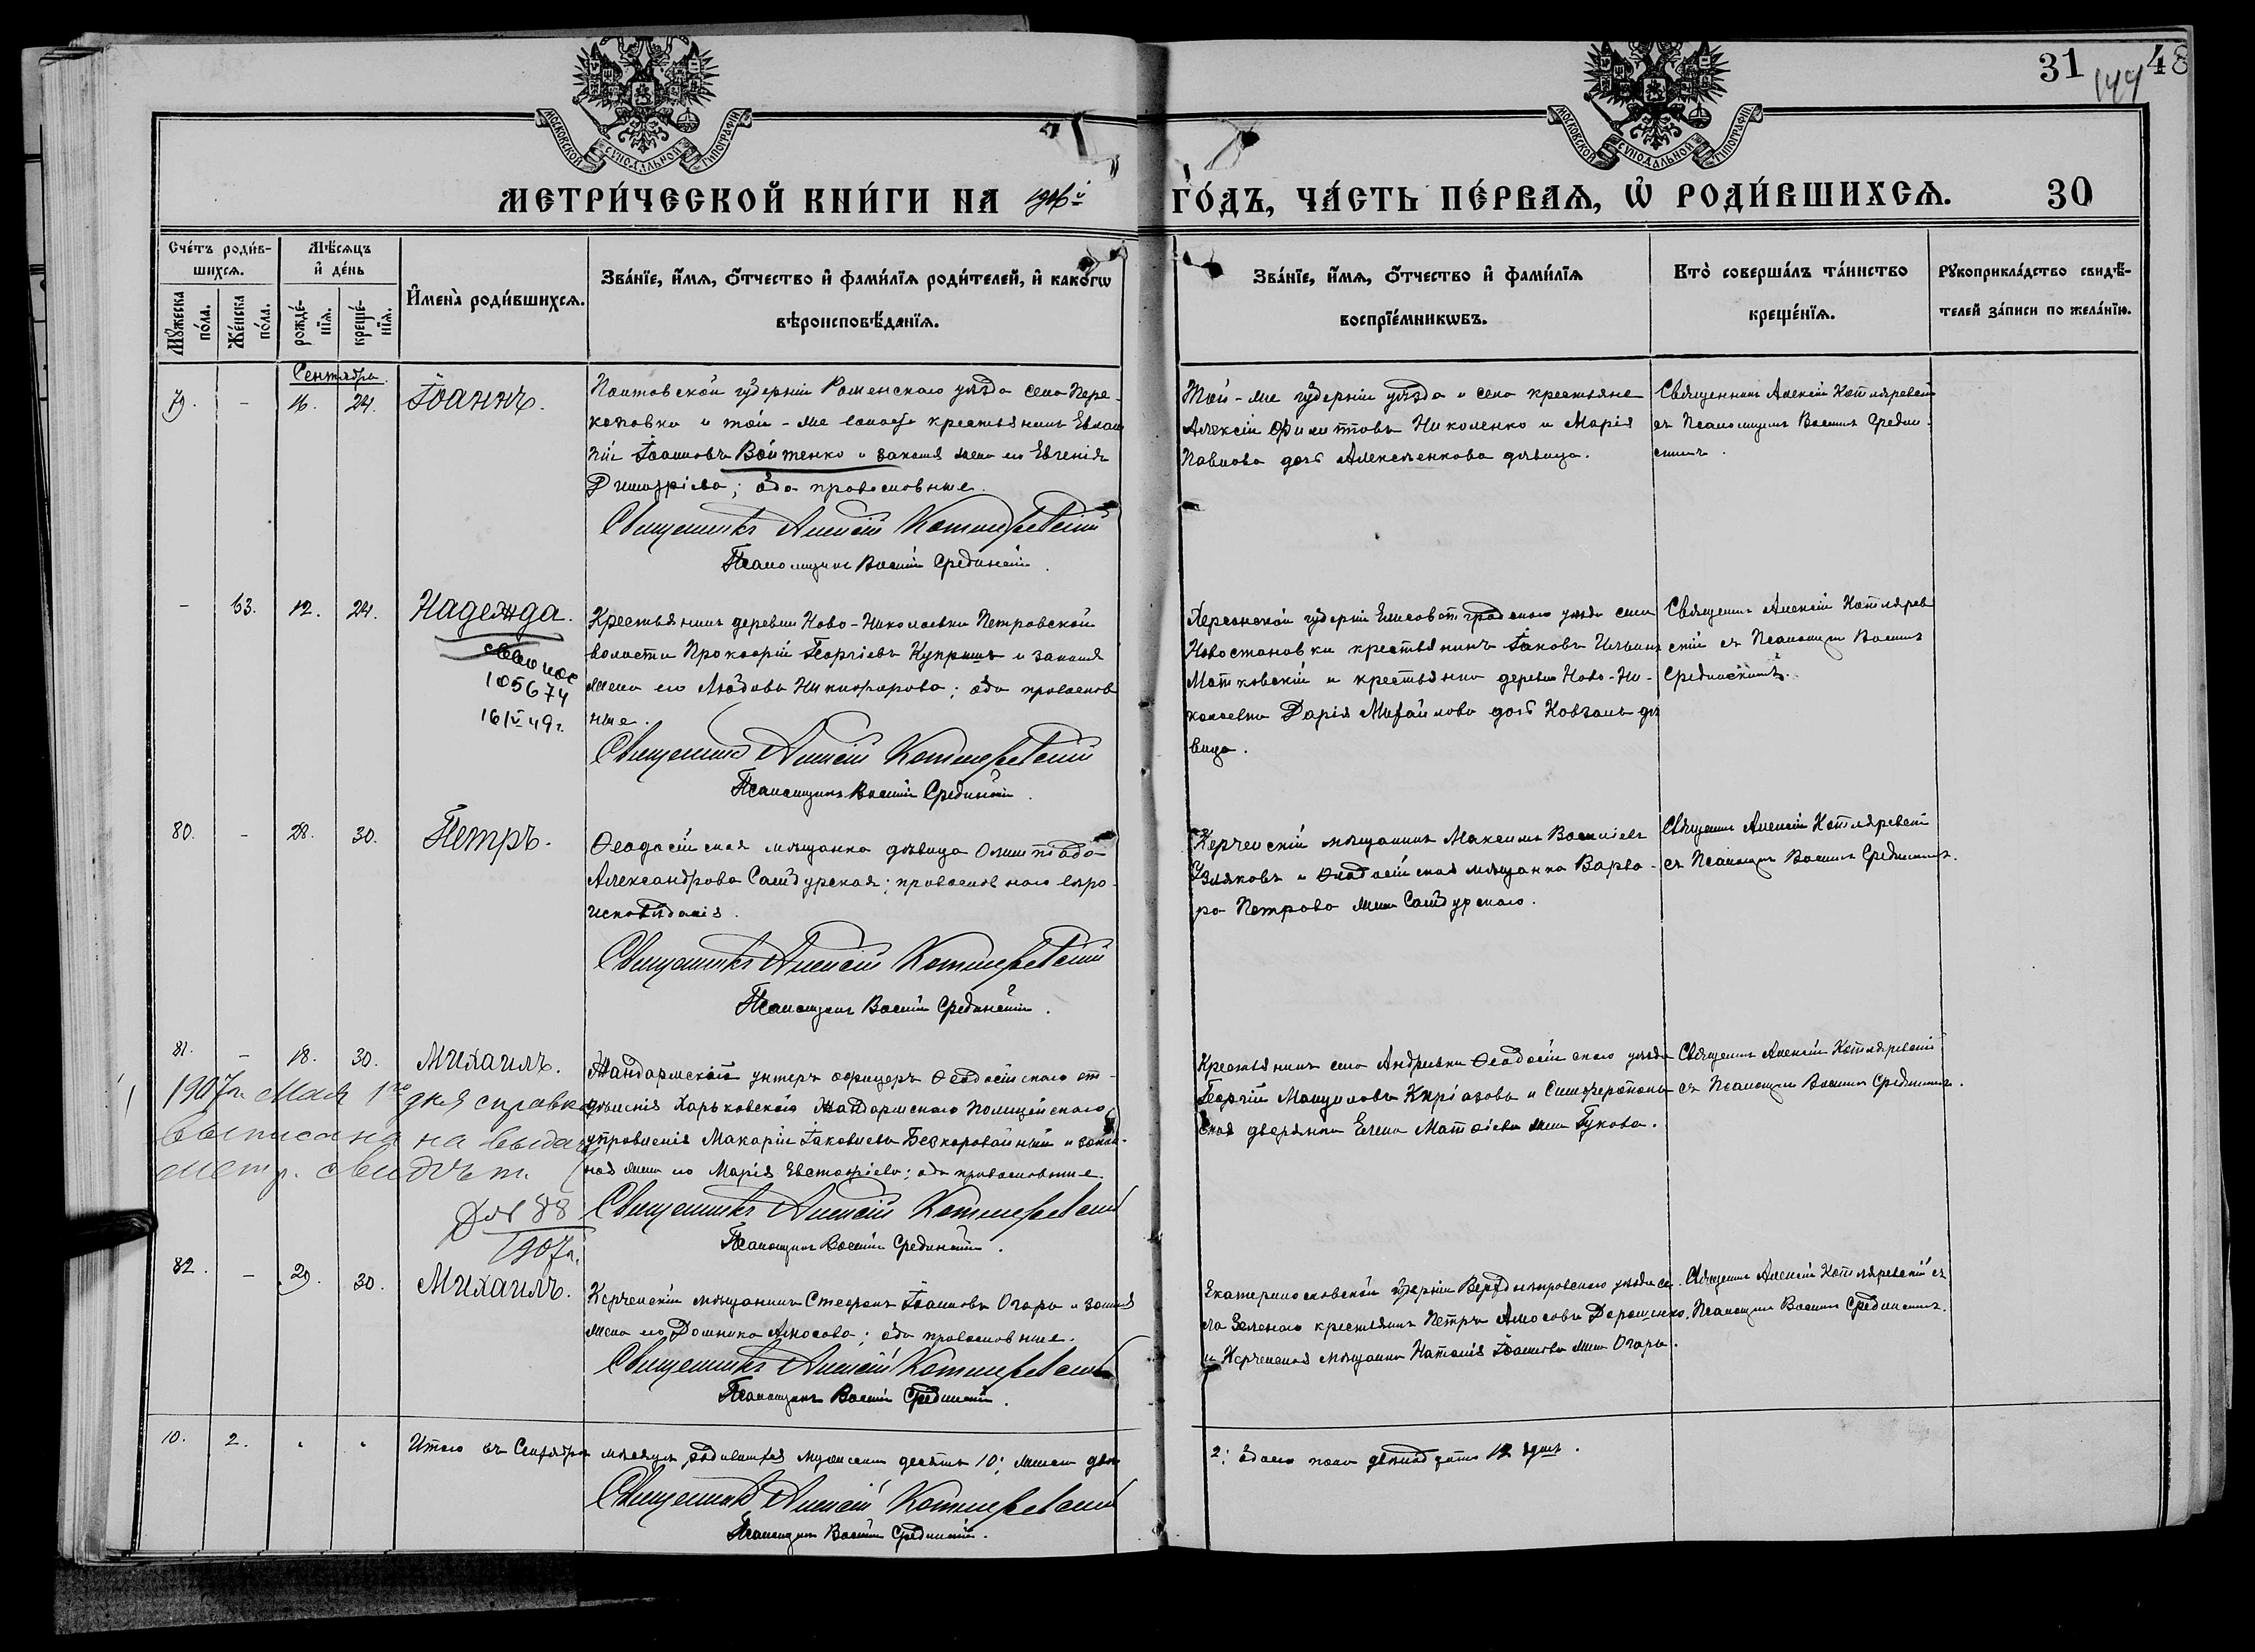 31
144
48
МОСКОВСКОЙ СУНОДАЛЬНОЙ ТИПОГРАФІИ
МОСКОВСКОЙ СУНОДАЛЬНОЙ ТИПОГРАФІИ
МЕТРИ́ЧЕСКОЙ КНИ́ГИ НА 1906й ГО́ДЪ, ЧА́СТЬ ПЕ́РВАѦ, Ѡ РОДИ́ВШИХСѦ.
30
Сче́тъ роди́в-
шихсѧ.
Мѣ́сѧцъ
и де́нь
Мꙋжеска
по́ла.
Же́нска
по́ла.
рожде́-
нїѧ.
креще́-
нїѧ.
Имена̀ роди́вшихсѧ.
Зва́нїе, и́мѧ, ѻ҆́тчество и фами́лїѧ роди́телей, и како́гѡ
вѣроисповѣ́данїѧ.
Зва́нїе, и́мѧ, ѻ҆́тчество и фами́лїѧ
воспрїе́мникѡвъ.
Кто̀ соверша́лъ та́инство
креще́нїѧ.
Рꙋкоприкла́дство свидѣ́-
телей за́писи по жела́нїю.
Сентября.
79. - 16. 24. Іоаннъ.
Полтовской губерніи Роменского уѣзда села Пере-
коповки и той-же волости крестьянинъ Евлам
пій Іоанновъ Войтенко и законная жена его Евгенія
Димитріева; оба православные.
Священникъ Алексій Котляревскій
Псаломщикъ Василій Срединскій.
Той-же губерніи уѣзда и села крестьяне
Алексій Филипповъ Николенко и Марія
Павлова дочь Алексѣенкова дѣвица.
Священникъ Алексій Котляревскій
съ Псаломщикомъ Василіемъ Средин-
скимъ.
- 63. 12. 24. Надежда.
105674
16/V 49г.
Крестьянинъ деревни Ново-Николаевки Петровской
волости Прокофій Георгіевъ Купришъ и законная
жена его Любовь Никифорова; оба православ
ные.
Священникъ Алексій Котляревскій
Псаломщикъ Василій Срединскій.
Херсонской губерніи Елисаветградского уѣзда села
Новостановки крестьянинъ Іаковъ Ильинъ
Матковскій и крестьянка деревни Ново-Ни-
колаевки Дарія Михайлова дочь Ковзанъ дѣ
вица.
Священникъ Алексій Котлярев
скій съ Псаломщикомъ Василіемъ
Срединскимъ.
80. - 28. 30. Петръ.
Ѳеодосійская мѣщанка дѣвица Олимпіада
Александрова Самбурская; православного вѣро-
исповѣданія.
Священникъ Алексій Котляревскій
Псаломщикъ Василій Срединскій.
Керченскій мѣщанинъ Максимъ Васильевъ
и Ѳеодосійская мѣщанка Варва-
ра Петрова жена Самбурского.
Священникъ Алексій Котляревскій
съ Псаломщикомъ Василіемъ Срединскимъ.
81. - 18. 30. Михаилъ.
1907г. Мая 1го дня справка
выписана на выдачу
метр. свидѣт.
88
1907г.
Жандармскій унтеръ офицеръ Ѳеодосійского от-
дѣленія Харьковского Жандармского Полицейского
управленія Макарій Іаковлевъ Безкоровайный и закон-
ная жена его Марія Евстафіева; оба православные.
Священникъ Алексій Котляревскій
Псаломщикъ Василій Срединскій.
Крестьянинъ села Андреевки Ѳеодосійского уѣзда
Георгій Киріазовъ и Симферополь
ская дворянка Елена Матѳіева жена Гукова.
Священникъ Алексій Котляревскій
съ Псаломщикомъ Василіемъ Срединскимъ.
82. - 29. 30. Михаилъ.
Керченскій мѣщанинъ Стефанъ Іоанновъ Огарь и законная
жена его Домника Амосова; оба православные.
Священникъ Алексій Котляревскій
Псаломщикъ Василій Срединскій.
Екатеринославской губерніи Верхнеднѣпровского уѣзда се-
ла Зеленого крестьянинъ Петръ Амосовъ Дорошенко
и Керченская мѣщанка Наталія Іоаннова жена Огарь.
Священникъ Алексій Котляревскій съ
Псаломщикомъ Василіемъ Срединскимъ.
10. 2. Итого въ Сентябрѣ мѣсяцѣ родившихся мужескаго десять 10; женска два
2; обоего пола двѣнадцать 12 душъ.
Священникъ Алексій Котляревскій
Псаломщикъ Василій Срединскій.